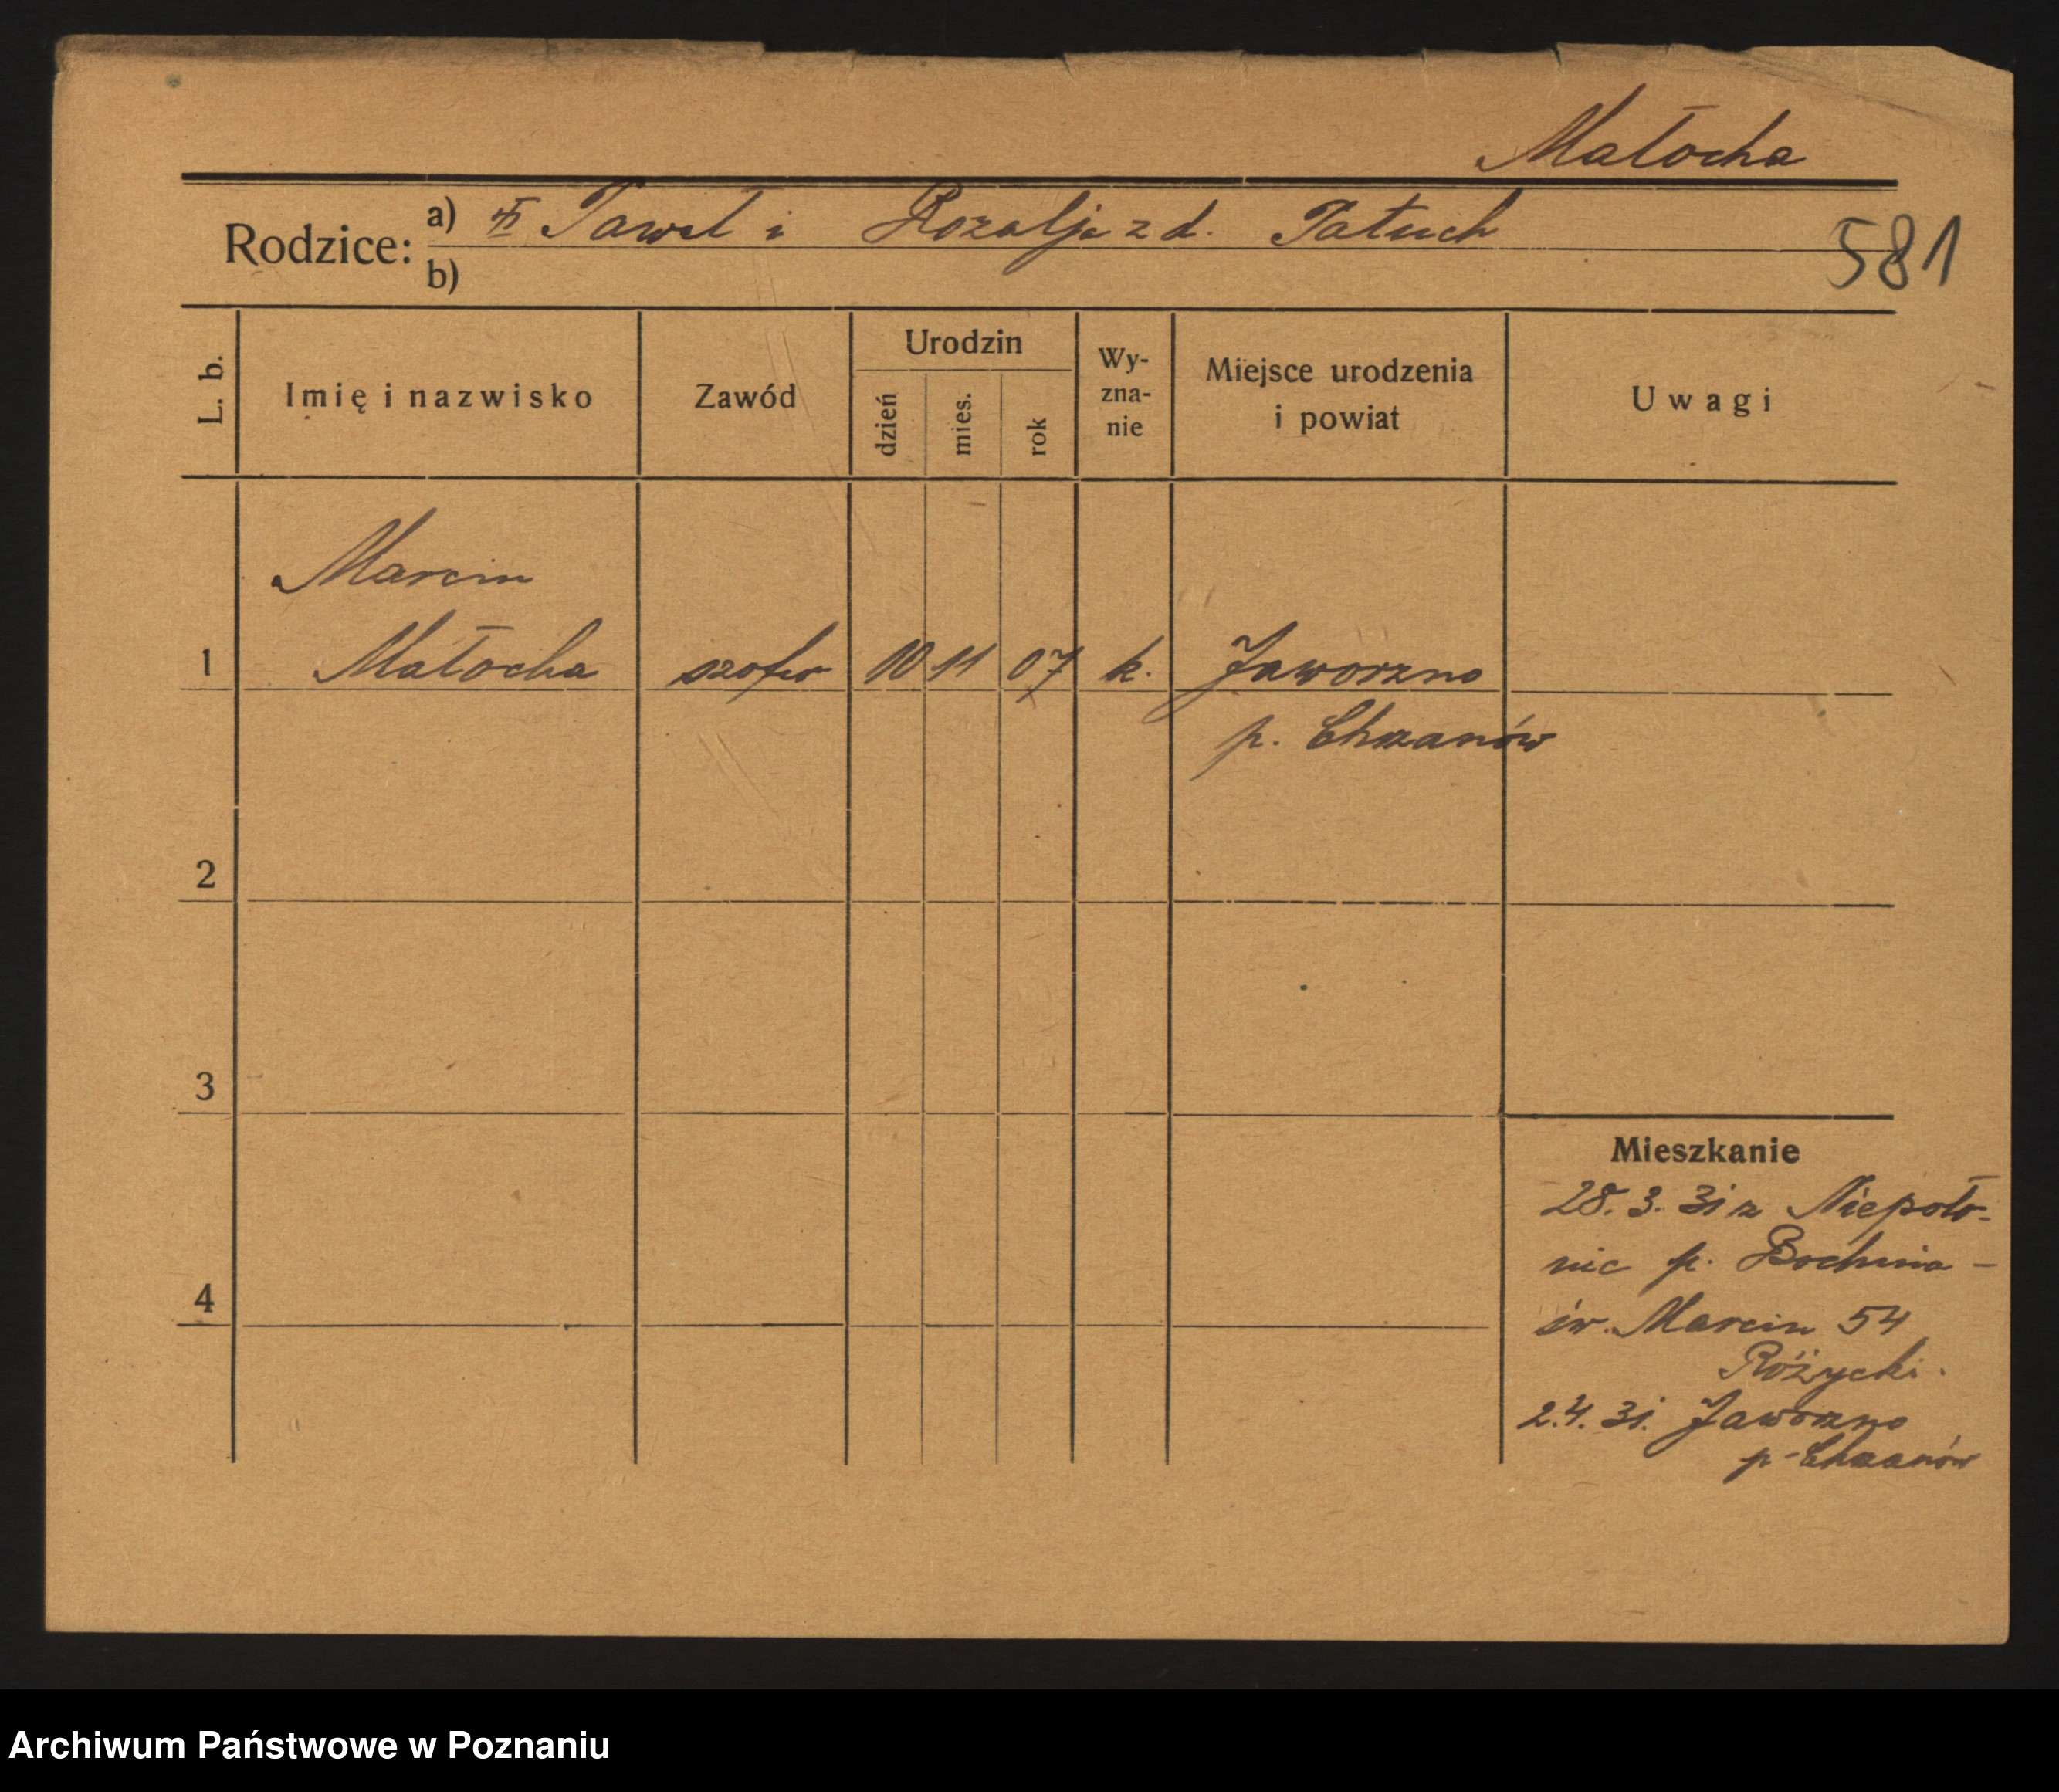 Małocha
Rodzice: a) Paweł i Rozalja z d. Patuch
b)
581
L. b.
Imię i nazwisko
Zawód
Urodzin
dzień
mies.
rok
Wy-
zna-
nie
Miejsce urodzenia
i powiat
Uwagi
Marcin
1 Małocha szofer 10 11 07 k. Jaworzno
p. Chrzanów
2
3
4
Mieszkanie
28. 3. 31 z Niepoło-
nic p. Bochnia -
św. Marcin 54
Różycki.
2.4. 31. Jaworzno
p. Chrzanów
Archiwum Państwowe w Poznaniu